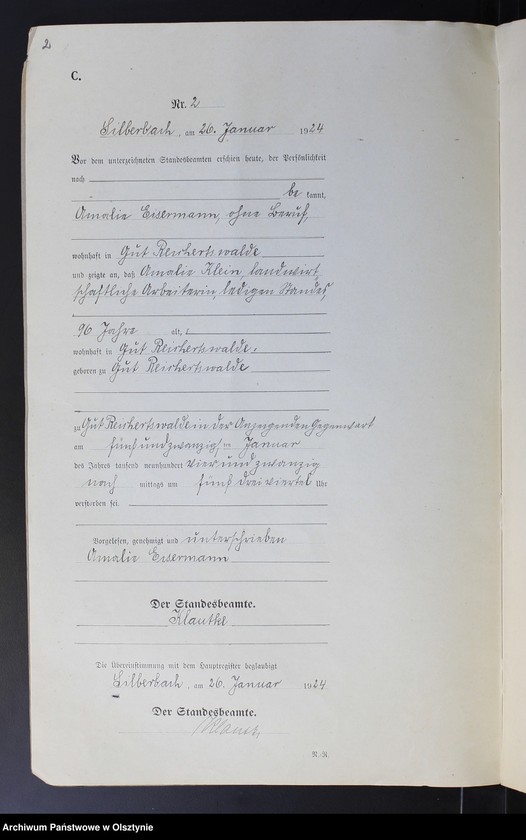 2
C.
Nr. 2
Silberbach, am 26. Januar 1924
Vor dem unterzeichneten Standesbeamten erschien heute, der Persönlichkeit
nach
be kannt,
Amalie Eisermann, ohne Beruf,
wohnhaft in Gut Reichertswalde
und zeigte an, daß Amalie Klein, landwirt
schaftliche Arbeiterin, ledigen Standes,
96 Jahre alt,
wohnhaft in Gut Reichertswalde,
geboren zu Gut Reichertswalde
zu Gut Reichertswalde in der Anzeigenden Gegenwart
am fünfundzwanzigsten Januar
des Jahres tausend neunhundert vierundzwanzig
nach mittags um fünf dreiviertel Uhr
verstorben sei.
Vorgelesen, genehmigt und unterschrieben
Amalie Eisermann
Der Standesbeamte.
Klautke
Die Übereinstimmung mit dem Hauptregister beglaubigt
Silberbach, am 26. Januar 1924
Der Standesbeamte.
Archiwum Państwowe w Olsztynie